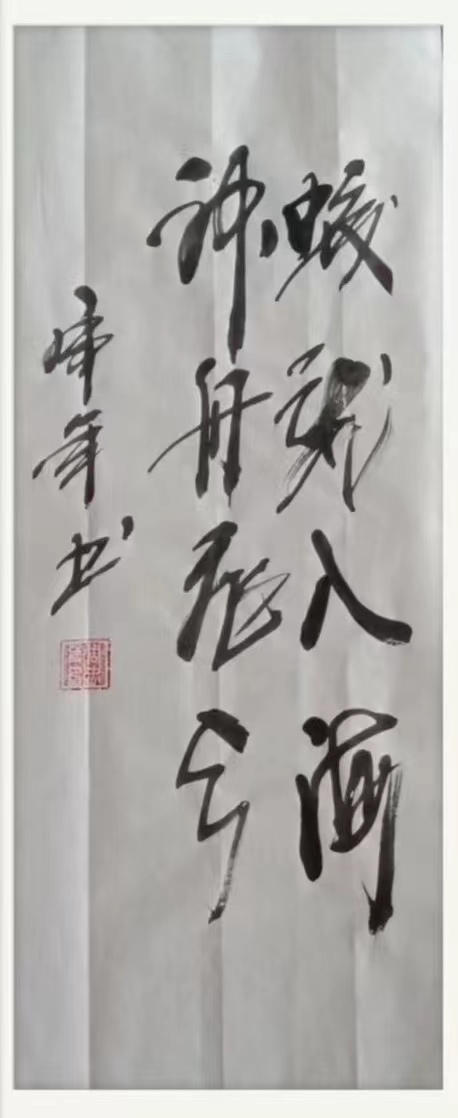 蛟龙入海
神舟飞天
年书